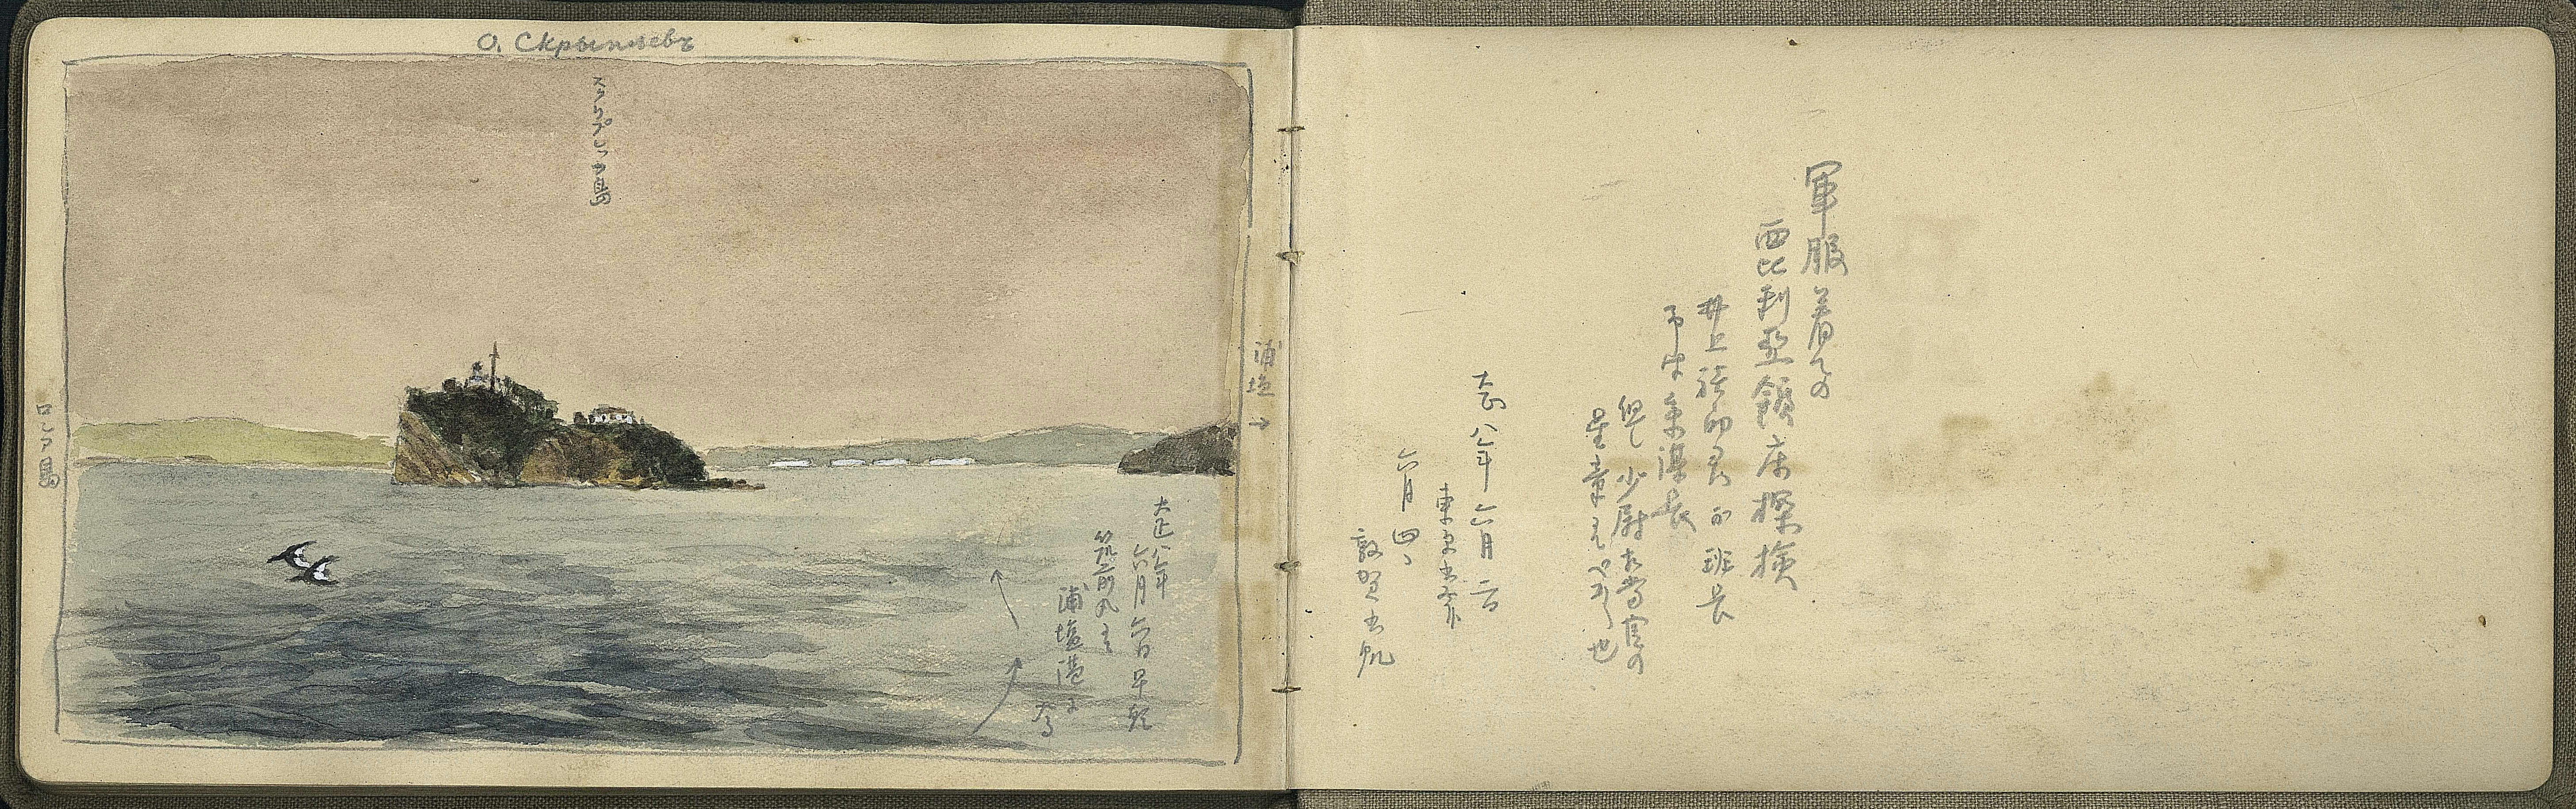 軍服着ての
西比利亜鉱床探検
井上禧之助君の班長
但し少尉相当官の
星章をつけし也
大正八年六月二日
東京出発
六月四日
敦賀出帆
О. Скрыплевъ
スクリプレフ島
浦塩→
ロシア島
大正八年
六月六日早朝
筑前丸にて
浦塩港に
入る